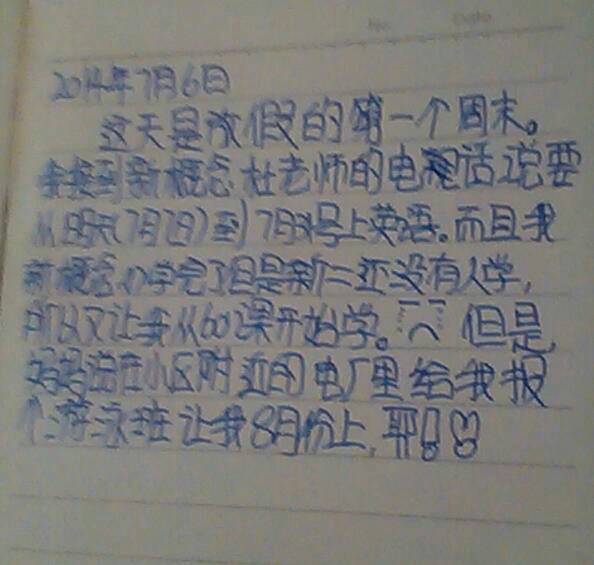 No. Date
2014年7月6日
这天是放假的第一个周末。
接到新概念杜老师的电话说要
从明天(7月7日)到7月号上英语。而且我
新概念学完了但是新二还没有人学,
所以又让我从60课开始学。但是,
妈妈说在小区附近的电厂里给我报
个游泳班让我8月份上,耶!